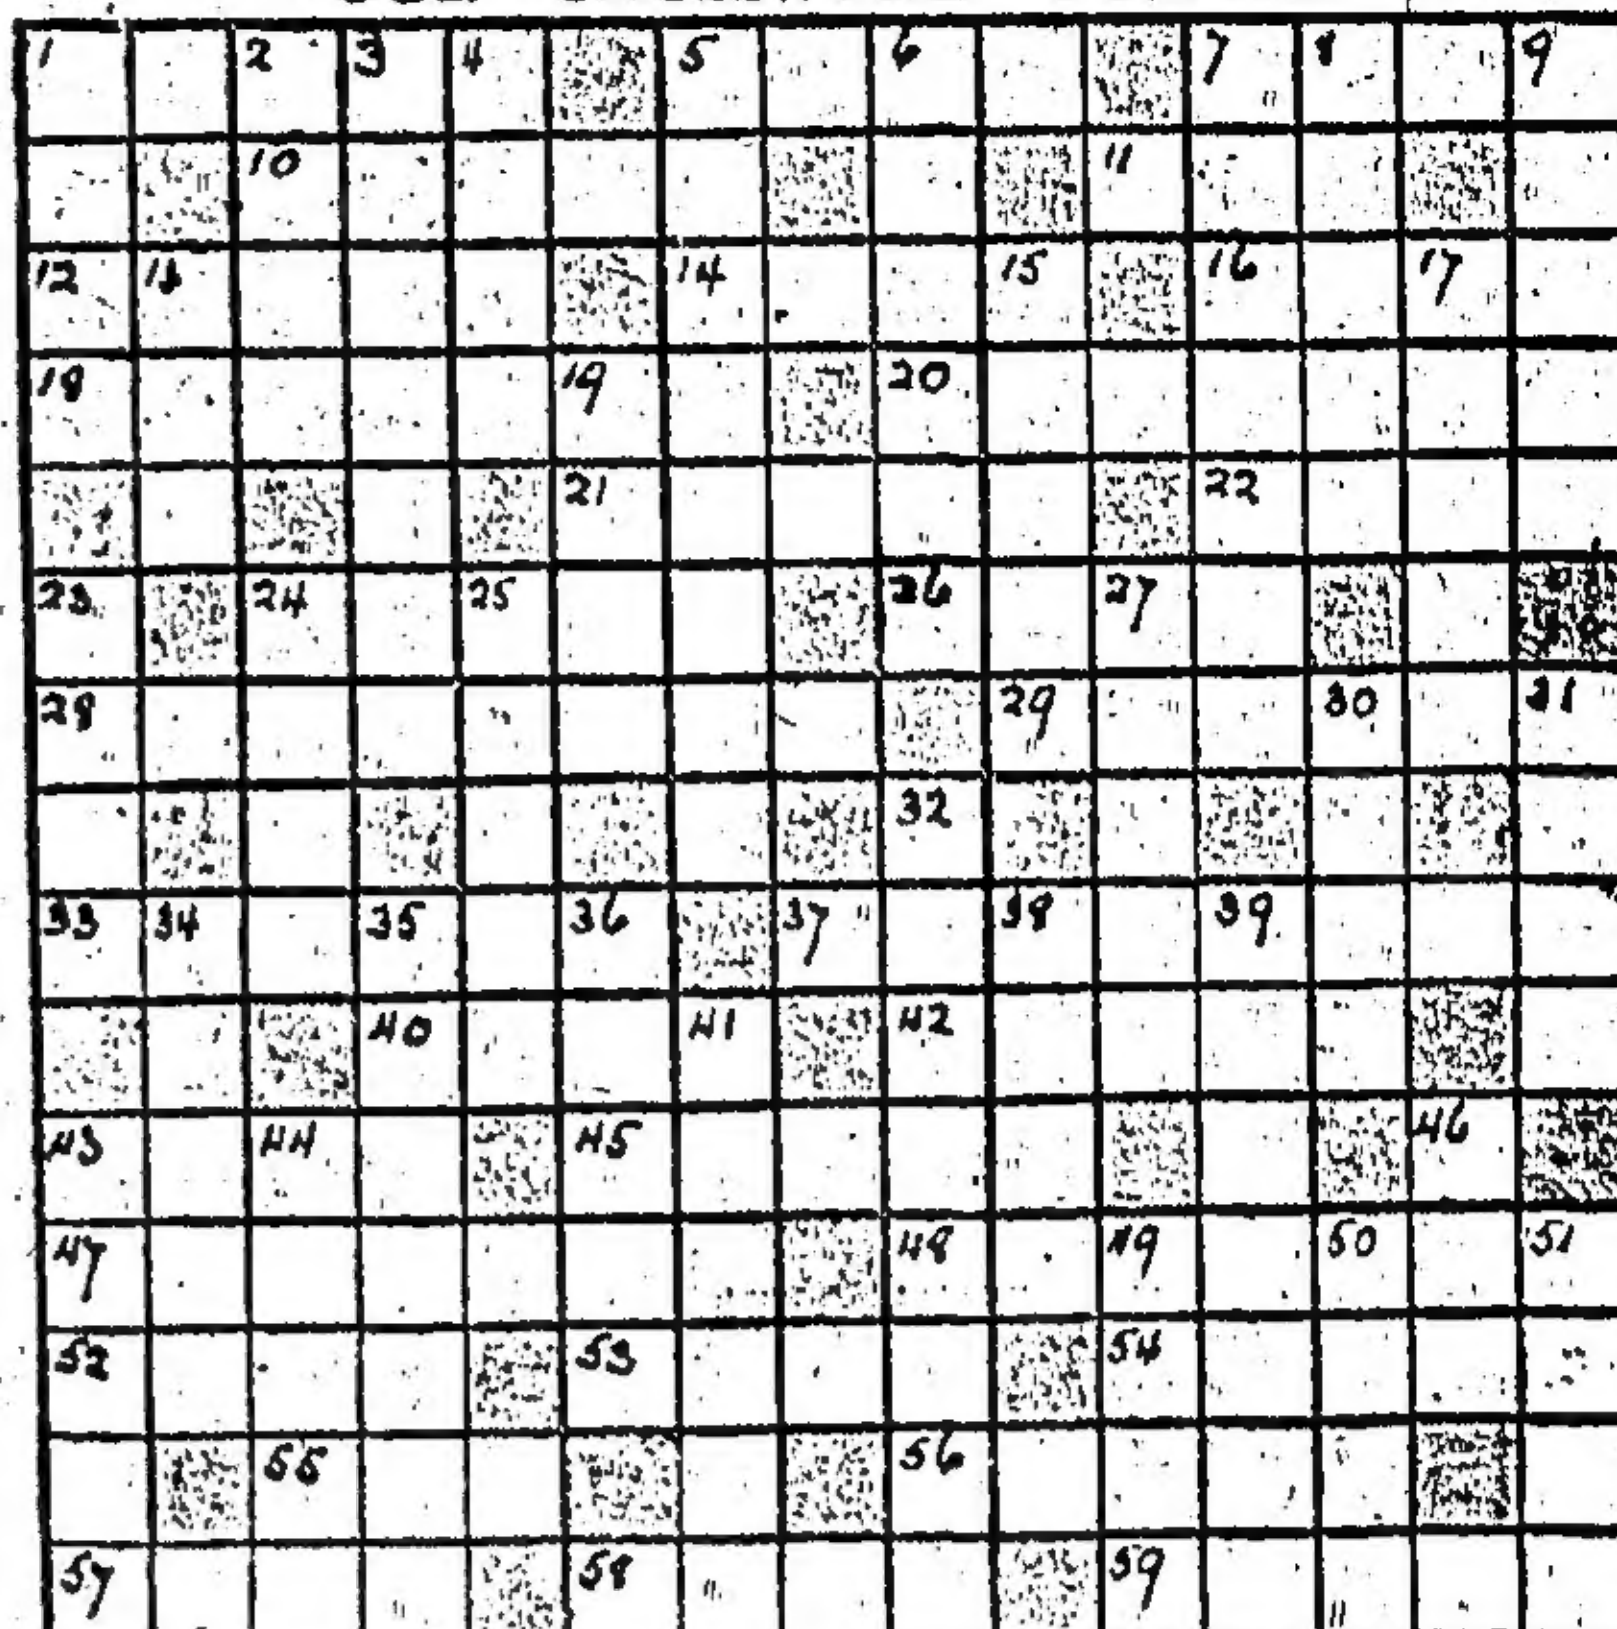 1 2 3 4 5 6 7 8 9
10 11
12 13 14 15 16 17
18 19 20
21 22
23 24 25 26 27
28 29 30 31
32
33 34 35 36 37 38 39
40 41 42
43 44 45 46
47 48 49 50 51
52 53 54
55 56
57 58 59